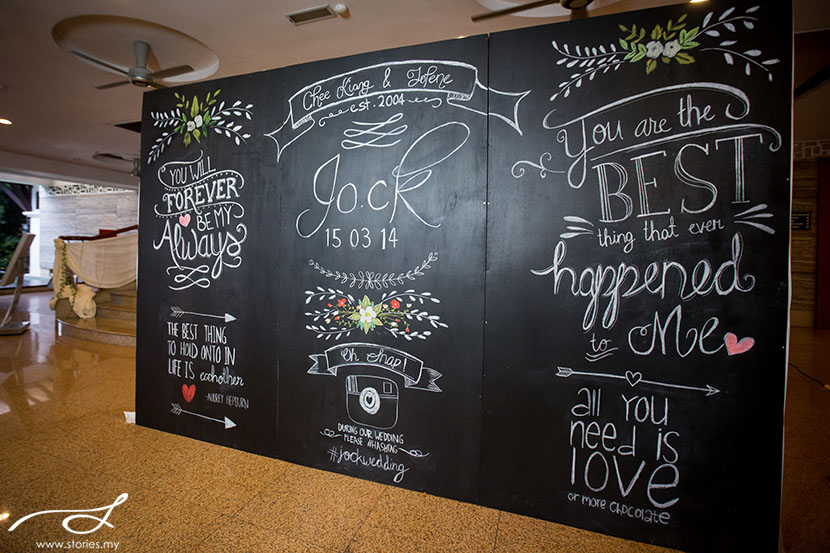 YOU WILL
FOREVER
BE MY
Always
THE BEST THING
TO HOLD ONTO IN
LIFE IS eachother
-AUDREY HEPBURN
Chee Kiang & Jolene
est. 2004
Jo.ck
15 03 14
Oh Snap!
DURING OUR WEDDING
PLEASE #HASHTAG
#jockwedding
You are the
BEST
thing that ever
happened
to Me
all you
need is
love
or more chocolate
www.stories.my